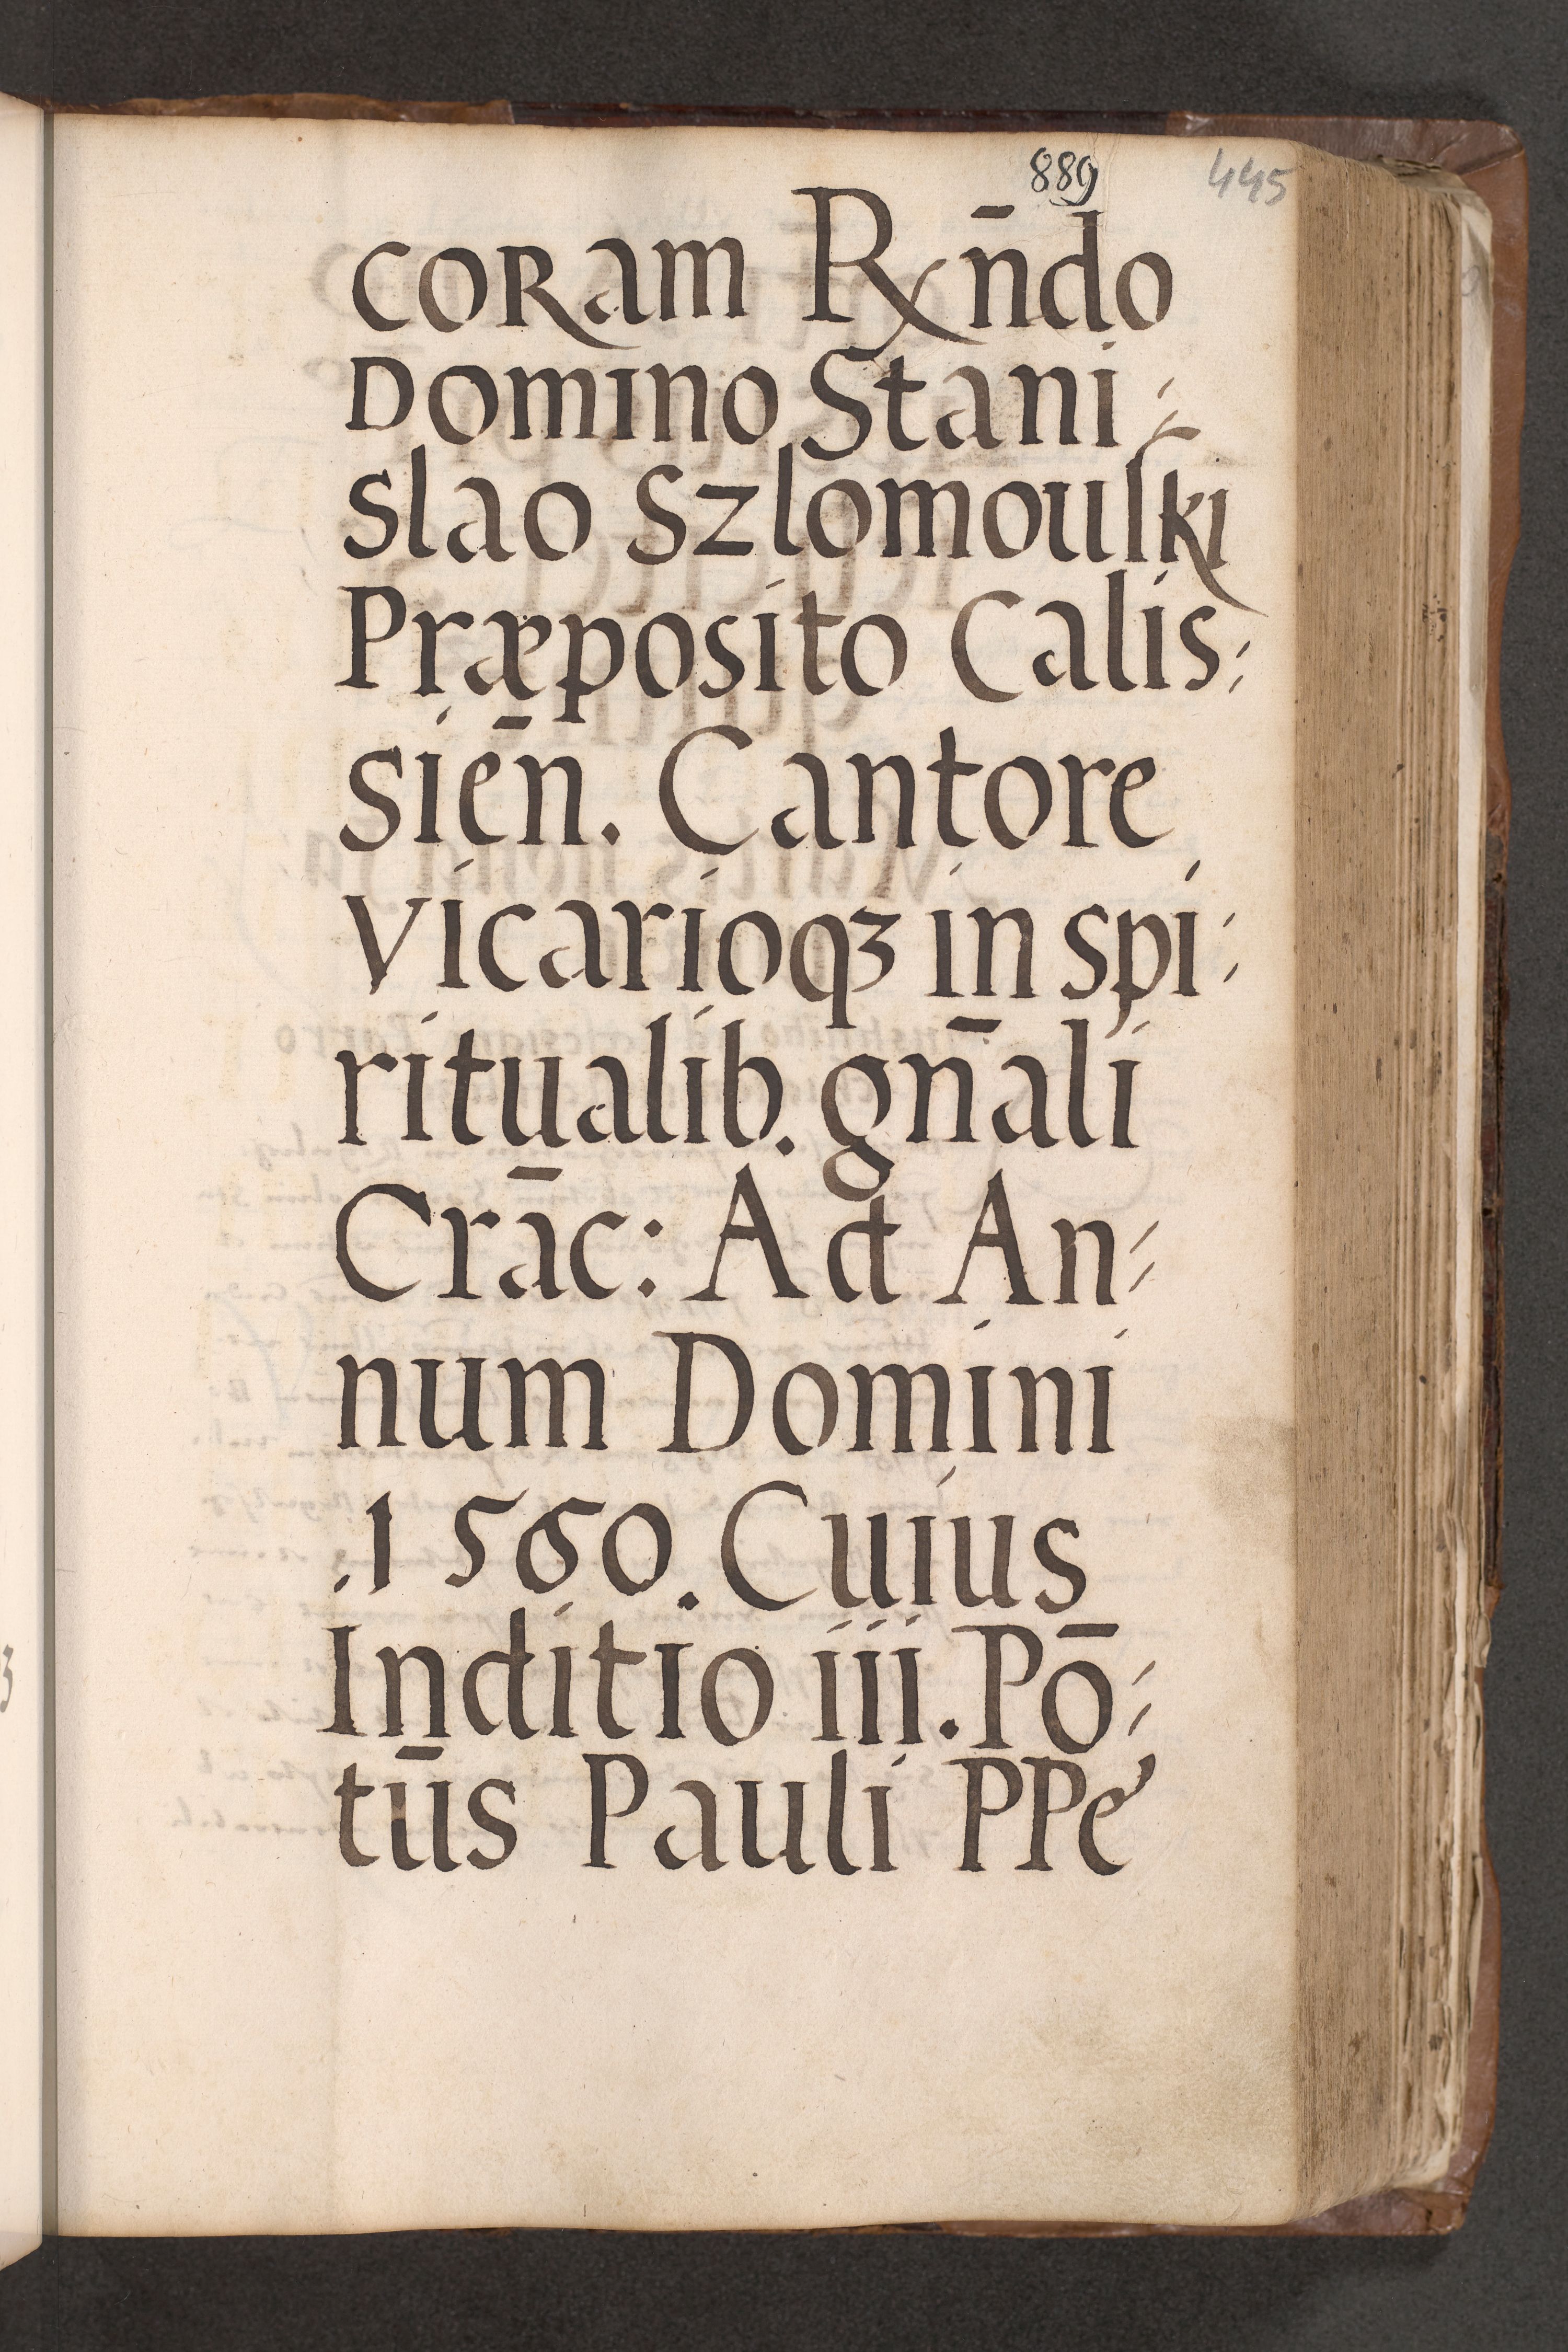 889 445
CORam Rxn̄do
Domino Stani⸗
slao Szlomouſki
Præposito Calis⸗
siēn. Cantore
Vicarioqꝫ in spi⸗
ritualib. gn̄ali
Crāc: Ad An⸗
num Domini
.1560. Cuius
Inditio iii. Pō⸗
tūs Pauli PPe